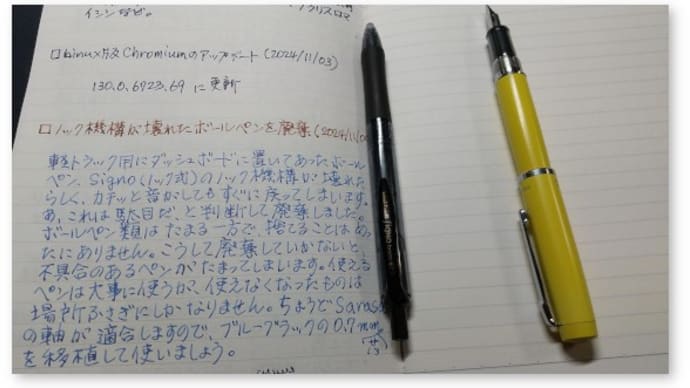 イシジなど。
□Linux版Chromiumのアップデート(2024/11/03)
130.0.6723.69に更新
□ノック機構が壊れたボールペンを廃棄(2024/11/0
軽トラック用にダッシュボードに置いてあったボール
ペン、Signo(ノック式)のノック機構が壊れた
らしく、カチッと音がしてもすぐに戻ってしまいます。
あ、これは駄目だ、と判断して廃棄しました。
ボールペン類はたまる一方で、捨てることはめっ
たにありません。こうして廃棄していかないと、
不具合のあるペンがたまってしまいます。使える
ペンは大事に使うが、使えなくなったものは
場所ふさぎにしかなりません。ちょうどSarasa
の軸が適合しますので、ブルーブラックの0.7mm
を移植して使いましょう。
Signo